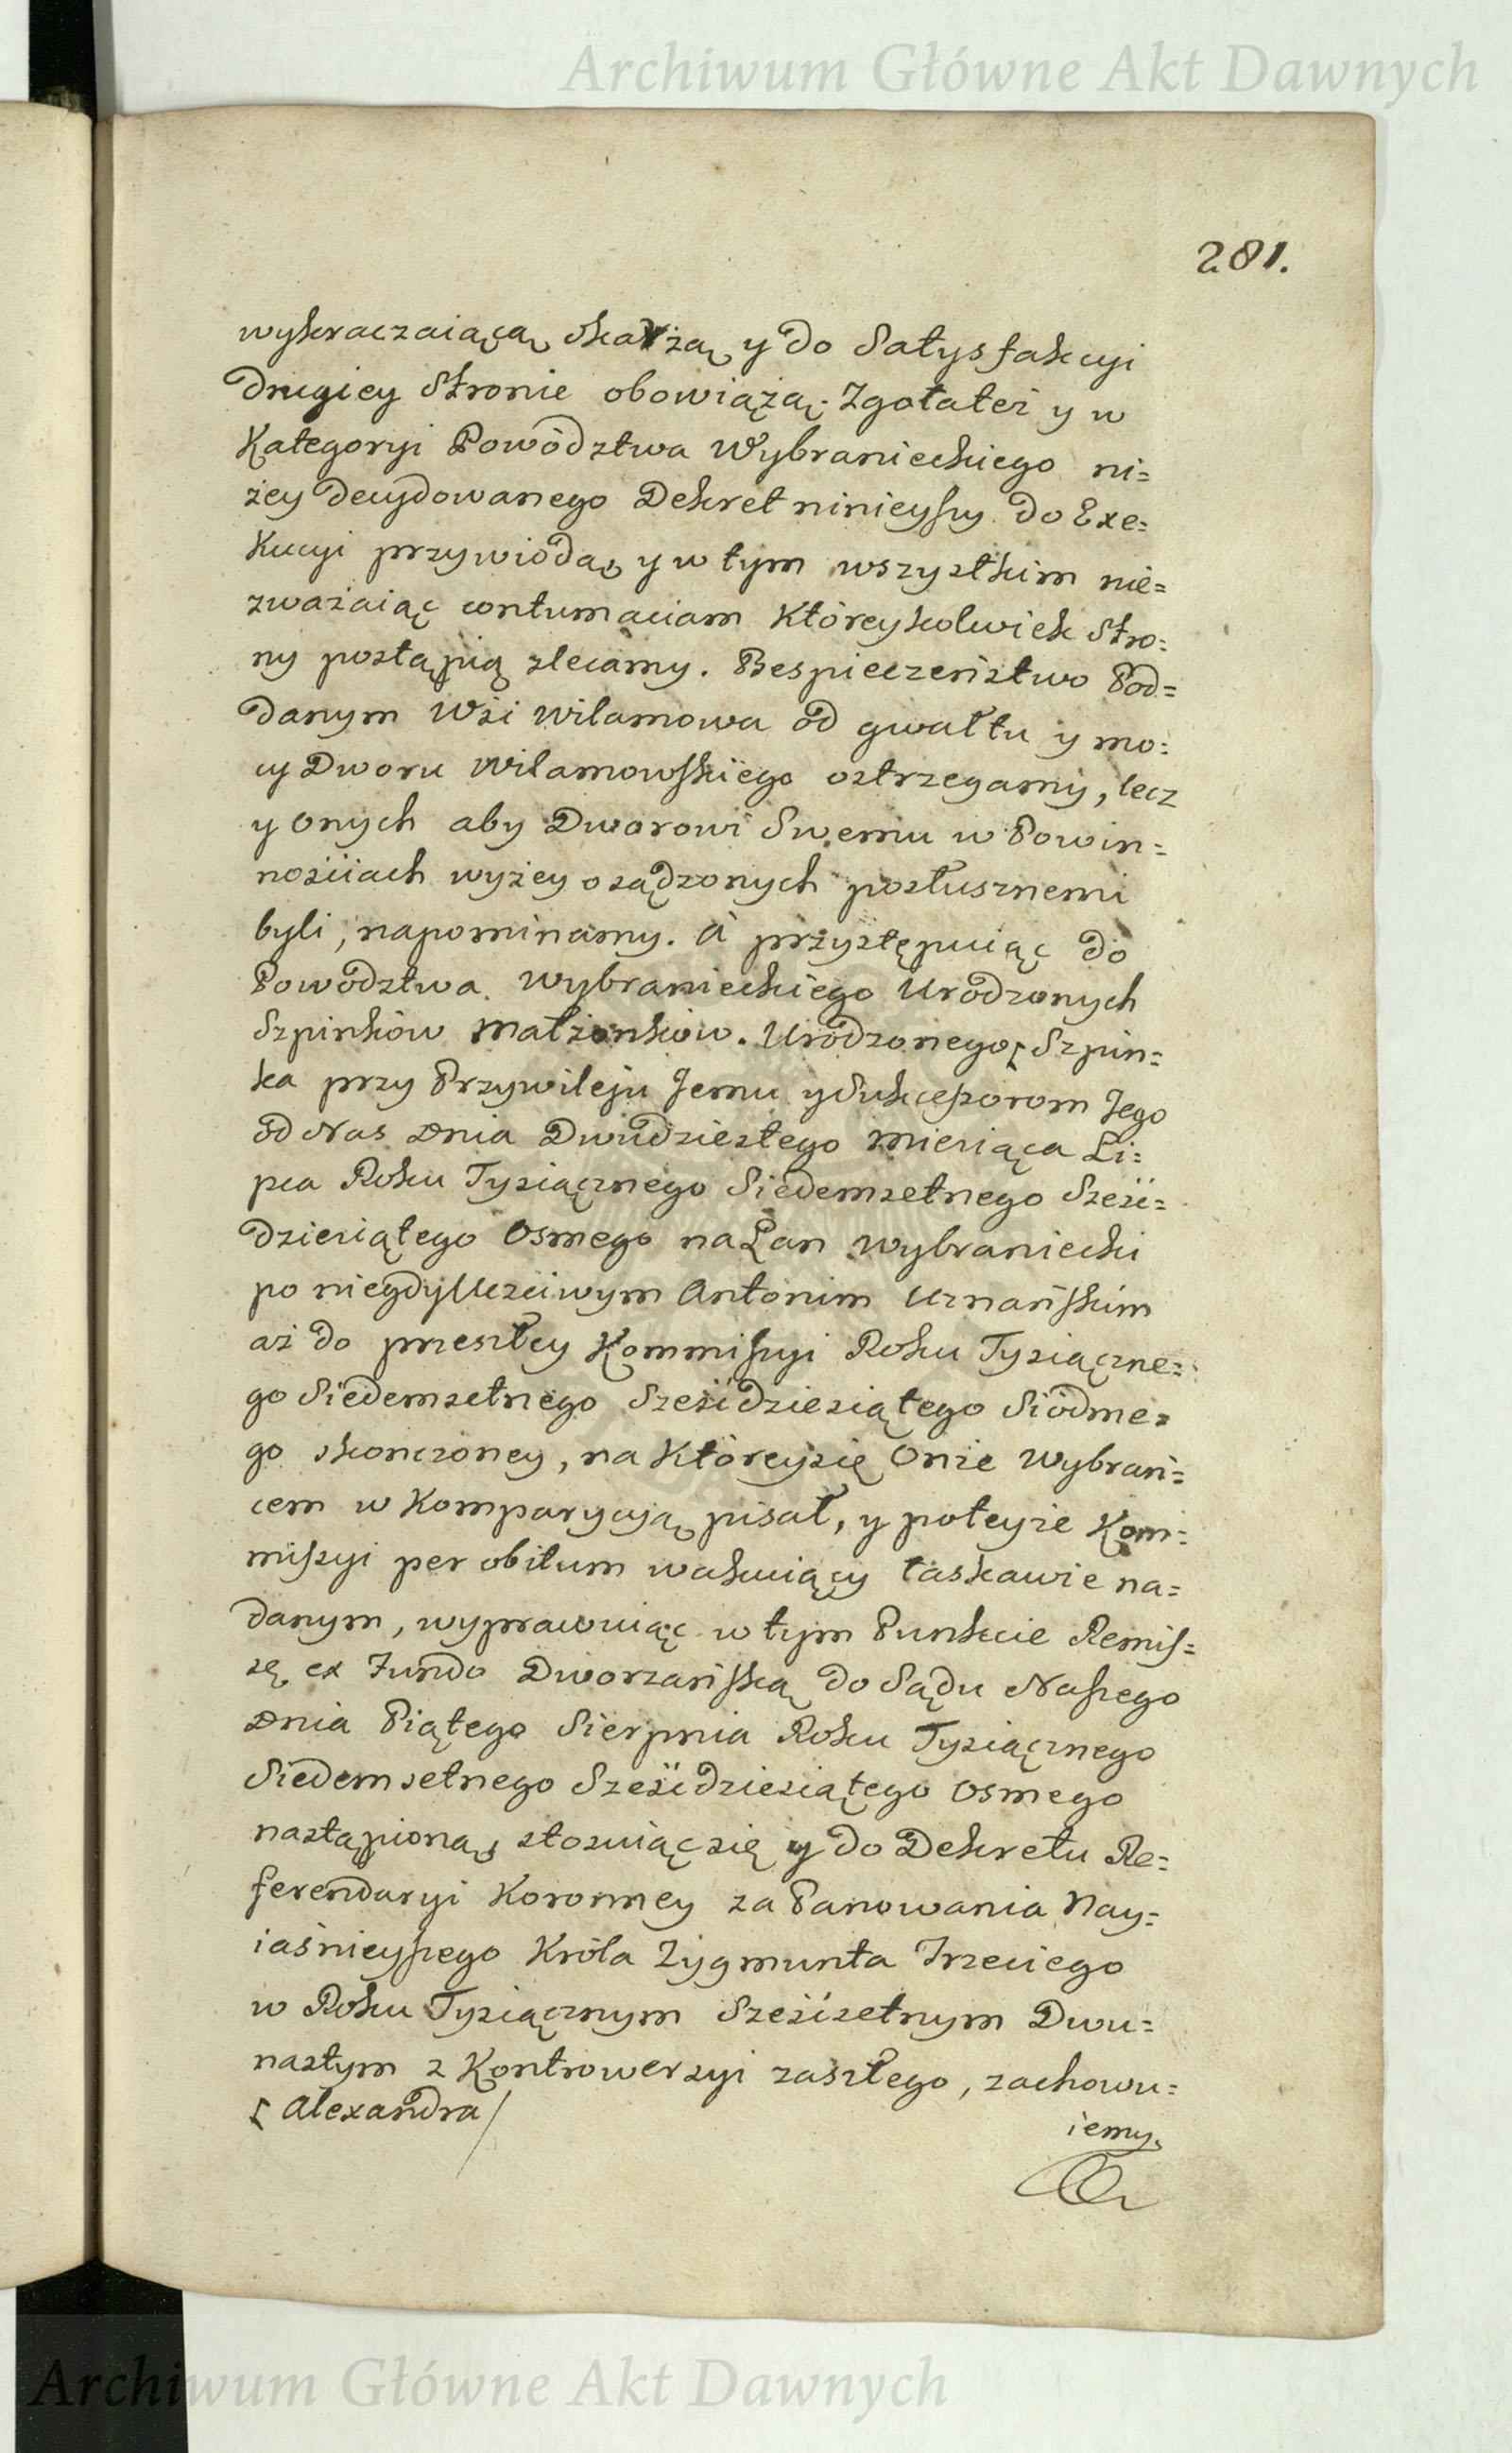 Archiwum Główne Akt Dawnych
281.
wykraczaiącą skarżą y do Satysfakcyi
drugiey Stronie obowiążą. Zgoła też y w
Kategoryi Powództwa Wybranieckiego ni=
żey decydowanego Dekret ninieyszy do Exe=
Kucyi przywiodą, y w tym wszystkim nie=
zważaiąc contumaciam Któreykolwiek Stro=
ny postąpią zlecamy. Bespieczeństwo Pod=
danym Wsi Wilamowa od gwałtu y mo=
cy Dworu Wilamowskiego ostrzegamy, lecz
y onych aby Dworowi Swemu w Powin=
nościach wyżey osądzonych posłusznemi
byli, napominamy. A przystępuiąc do
Powództwa Wybranieckiego Urodzonych
Szpinków Małżonków. Urodzonego [ Szpin=
ka przy Przywileju Jemu y Sukcessorom Jego
od Nas Dnia Dwudziestego Miesiąca Li=
pca Roku Tysiącznego Siedemsetnego Sześć=
dziesiątego Osmego na Łan Wybraniecki
po niegdy Uczciwym Antonim Uznańskim
aż do przeszłey Kommissyi Roku Tysiączne=
go Siedemsetnego Sześćdziesiątego Siódme=
go skonczoney, na Któreysię Onże Wybrań=
cem w Komparycyą pisał, y poteyże Kom=
missyi per obitum wakuiący łaskawie na=
danym, wyprawuiąc w tym Punkcie Remis=
sę ex Fundo Dworzańską do Sądu Naszego
Dnia Piątego Sierpnia Roku Tysiącznego
Siedemsetnego Sześćdziesiątego Osmego
nastąpioną, stosuiąc się y do Dekretu Re=
ferendaryi Koronney za Panowania Nay=
iaśnieyszego Króla Zygmunta Trzeciego
w Roku Tysiącznym Sześćsetnym Dwu=
nastym z Kontrowersyi zaszłego, zachowu=
[ Alexandra /
iemy.
Archiwum Główne Akt Dawnych